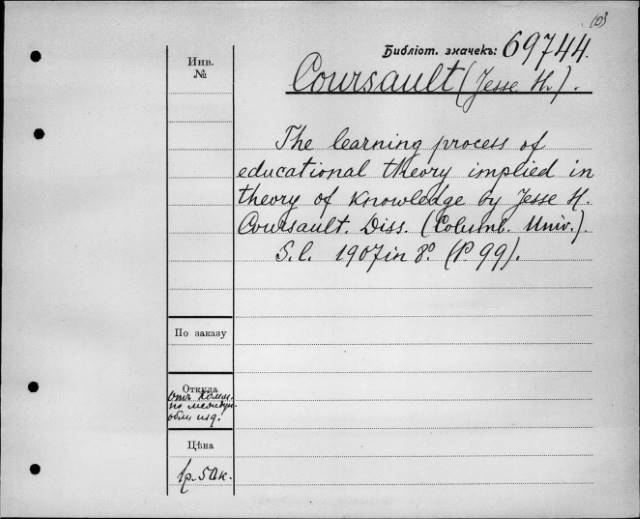 Библіот. значекъ: 69744.
Инв.
№
Coursault (Jesse H.).
The learning process of
educational theory implied in
theory of knowledge by Jesse H.
Coursault. Diss. (Columb. Univ.).
S. l. 1907 in 8º. (P. 99).
По заказу
Откуда
Отъ Комм.
по междун.
обм. изд.
Цѣна
1р. 50к.